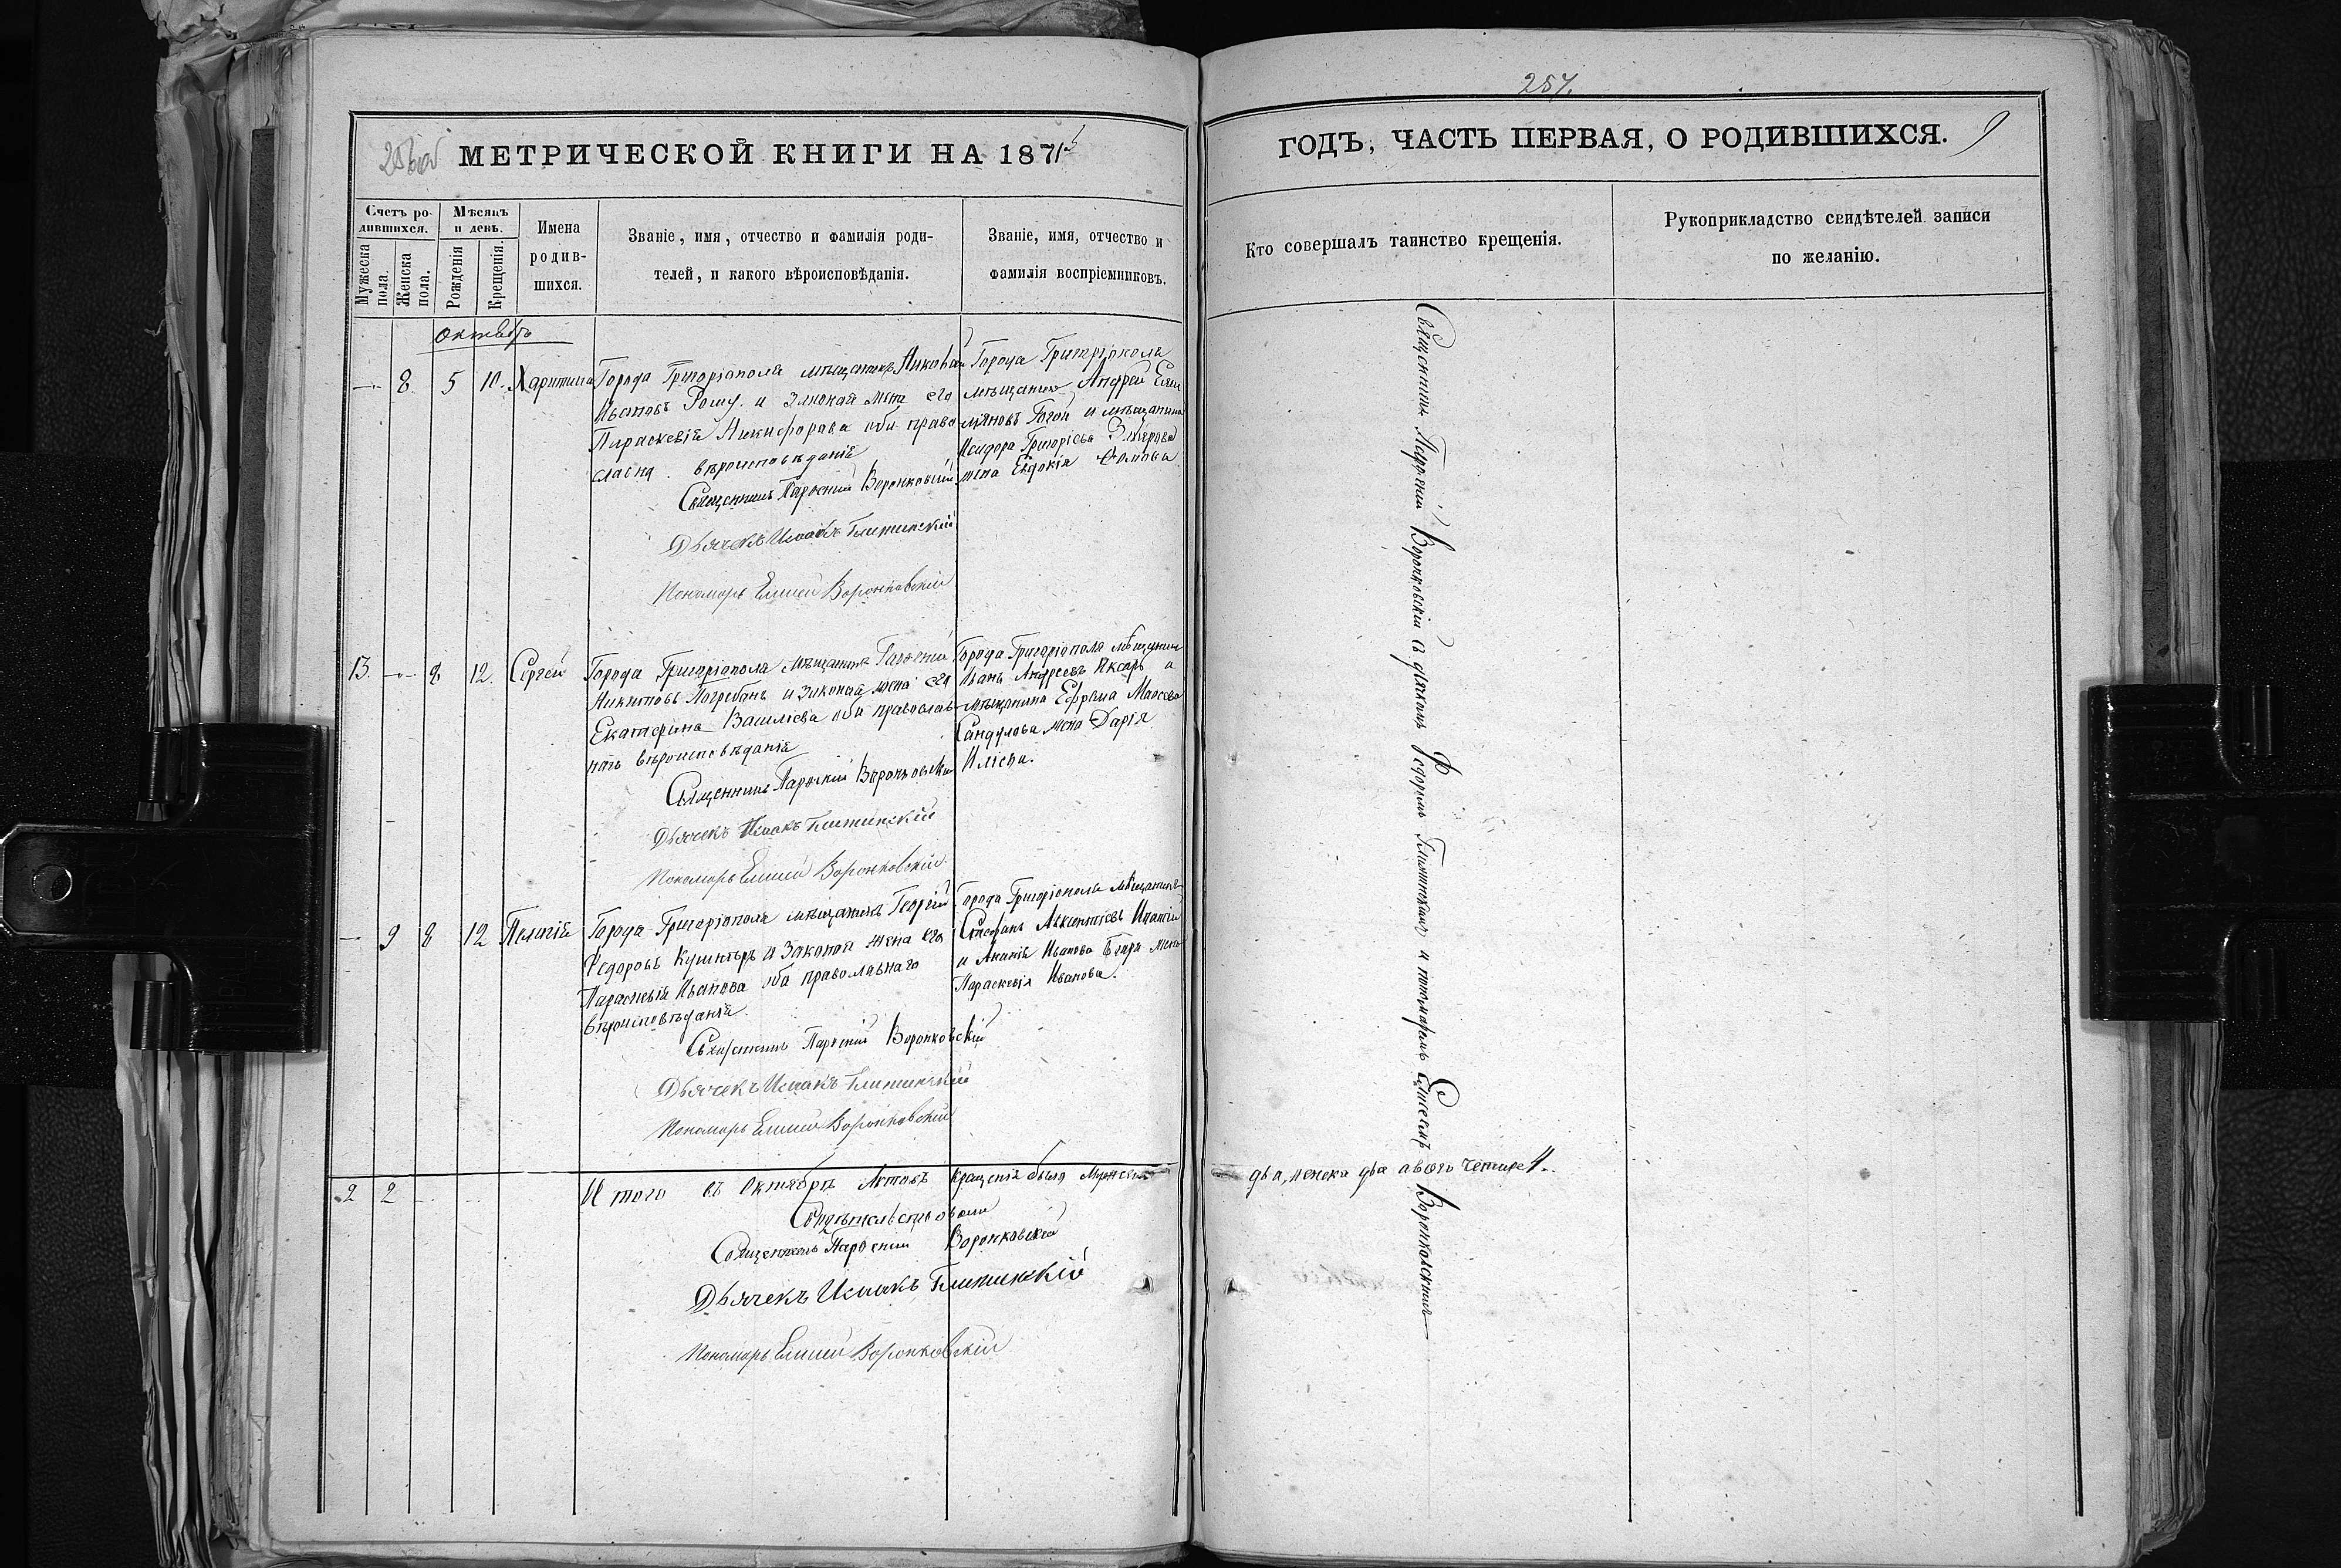 МЕТРИЧЕСКОЙ КНИГИ НА 1871
Счетъ ро-
дившихся.
Мужеска
пола.
Женска
пола.
Мѣсяцъ
и день.
Рожденія
Крещенія.
Имена
родив-
шихся.
Званіе, имя, отчество и фамилія роди-
телей, и какого вѣроисповѣданія.
Званіе, имя, отчество и
фамилія воспріемниковъ.
октябрь
8. 5 10. Харитина
Города Григоріополя мѣщанинъ
Ивановъ Рошу. и законая жена его
Параскевія Никифорова оба право
славна вѣроисповѣданія
Священникъ Парѳеній Воронковскій
Дьячекъ Исаакъ Глитинскій
Пономарь Елисей Воронковскій
Города Григоріополя
мѣщанинъ Андрей Еме
ляновъ и мѣщанина
Исидора Григорьева
жена Евдокія
13. 8. 12. Сергей
Города Григоріополя мѣщанинъ
Никитовъ Погребанъ и законая жена его
Екатерина Василіева оба православ-
наго вѣроисповѣданія
Священникъ Парѳеній Воронковскій
Дьячекъ Исаакъ Глитинскій
Пономарь Елисей Воронковскій
Города Григоріополя мѣщанинъ
Иванъ Андреевъ и
мѣщанина Ефрема Моисеева
Сандулова жена Дарія
Иліева.
9 8 12 Пелагія
Города Григоріополя мѣщанинъ Георгій
Федоровъ Кушниръ и законая жена его
Параскевія Иванова оба православнаго
вѣроисповѣданія.
Священникъ Парѳеній Воронковскій
Дьячекъ Исаакъ Глитинскій
Пономарь Елисей Воронковскій
Города Григоріополя мѣщанинъ
Стефанъ Авксентіевъ
и Ананія Иванова жена
Параскевія Иванова.
2 2
Итого въ Октябрѣ крещенія было Мужеска
Свидѣтельствовали
Священникъ Парѳеній Воронковскій
Дьячекъ Исаакъ Глитинскій
Пономарь Елисей Воронковскій
257.
ГОДЪ, ЧАСТЬ ПЕРВАЯ, О РОДИВШИХСЯ. 9
Кто совершалъ таинство крещенія.
Рукоприкладство свидѣтелей записи
по желанію.
Священникъ Парѳеній Воронковскій съ дьячкомъ Федоромъ Глитинскимъ и пономаремъ Елисеемъ Воронковскимъ
два, женска два а всего четыре 4.